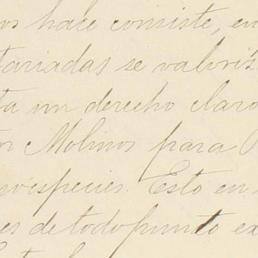 os hace consiste, en
tariadas se valoriz
ta un derecho claro
or Molinos para
especies. Esto en
es de todo punto ex